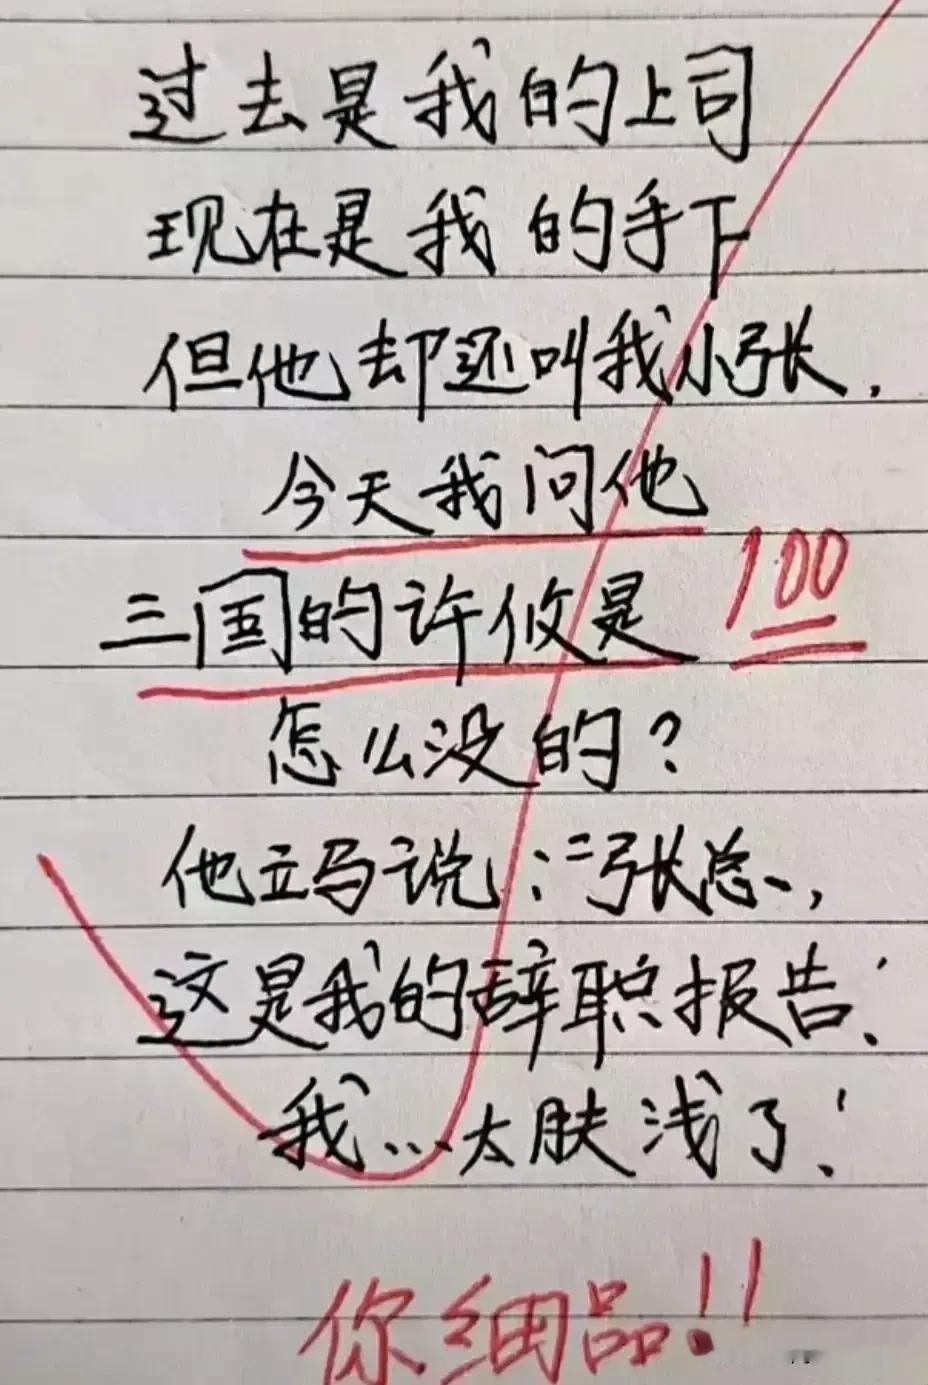 过去是我的上司
现在是我的手下
但他却还叫我小张.
今天我问他
三国的许攸是
100
怎么没的?
他立马说:“张总、,
这是我的辞职报告!
我...太肤浅了!
你细品!!